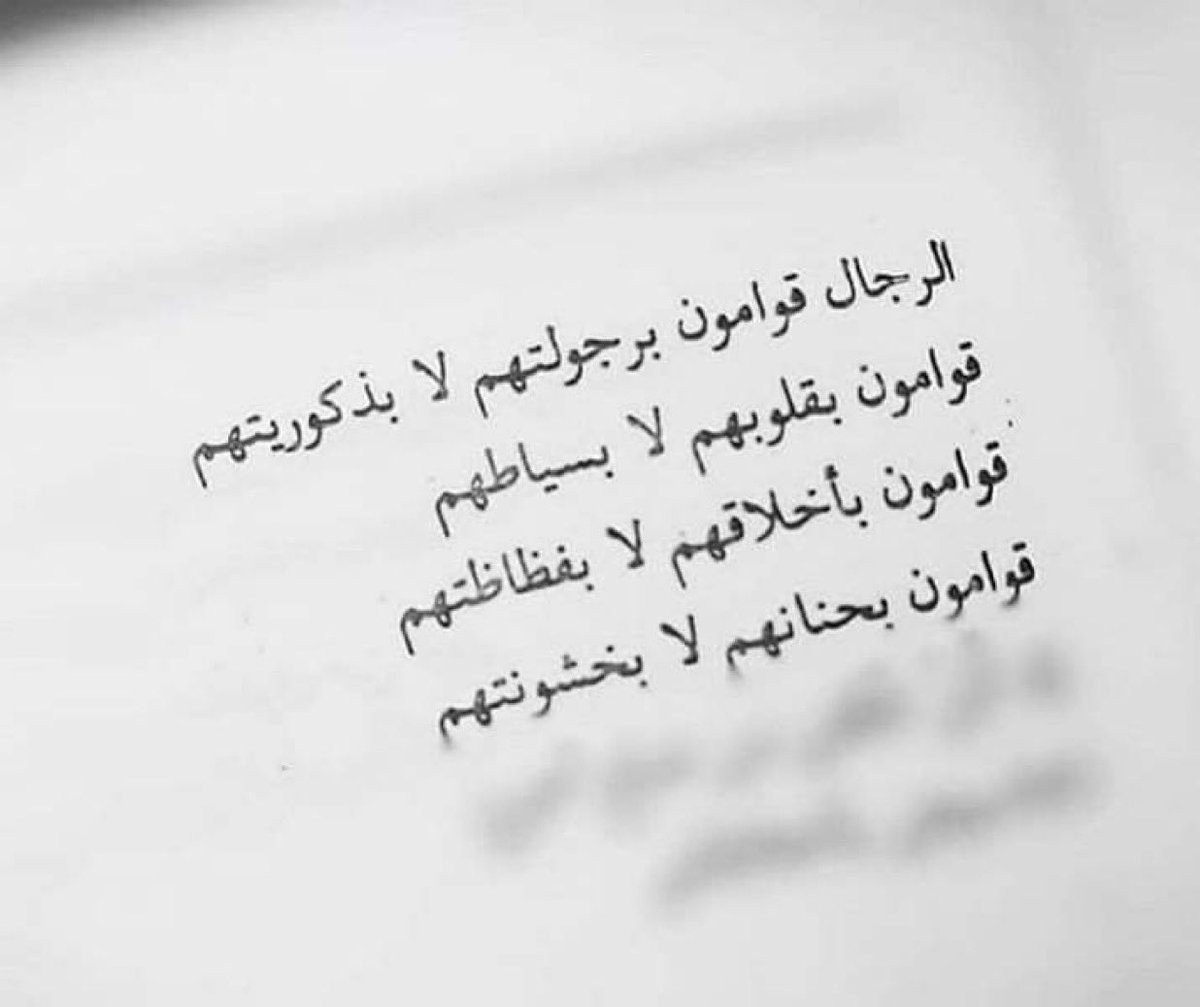 الرجال قوامون برجولتهم لا بذكوريتهم
قوامون بقلوبهم لا بسياطهم
قوامون بأخلاقهم لا بفظاظتهم
قوامون بحنانهم لا بخشونتهم